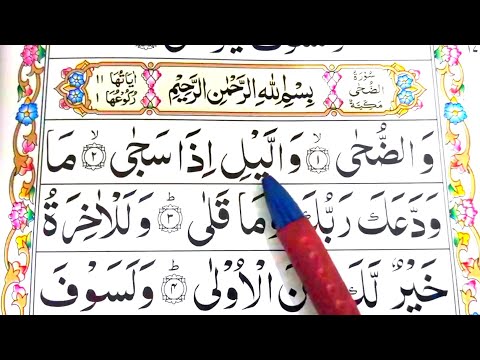 سُوْرَةُ الضُّحٰى مَكِّيَّةٌ
بِسْمِ اللّٰهِ الرَّحْمٰنِ الرَّحِيْمِ
اٰيَاتُهَا ١١ رُكُوْعُهَا ١
وَالضُّحٰى ۙ﴿۱﴾ وَالَّيْلِ اِذَا سَجٰى ۙ﴿۲﴾ مَا
وَدَّعَكَ رَبُّكَ وَمَا قَلٰى ؕ﴿۳﴾ وَلَلْاٰخِرَةُ
خَيْرٌ لَّكَ الْاُوْلٰى ؕ﴿۴﴾ وَلَسَوْفَ